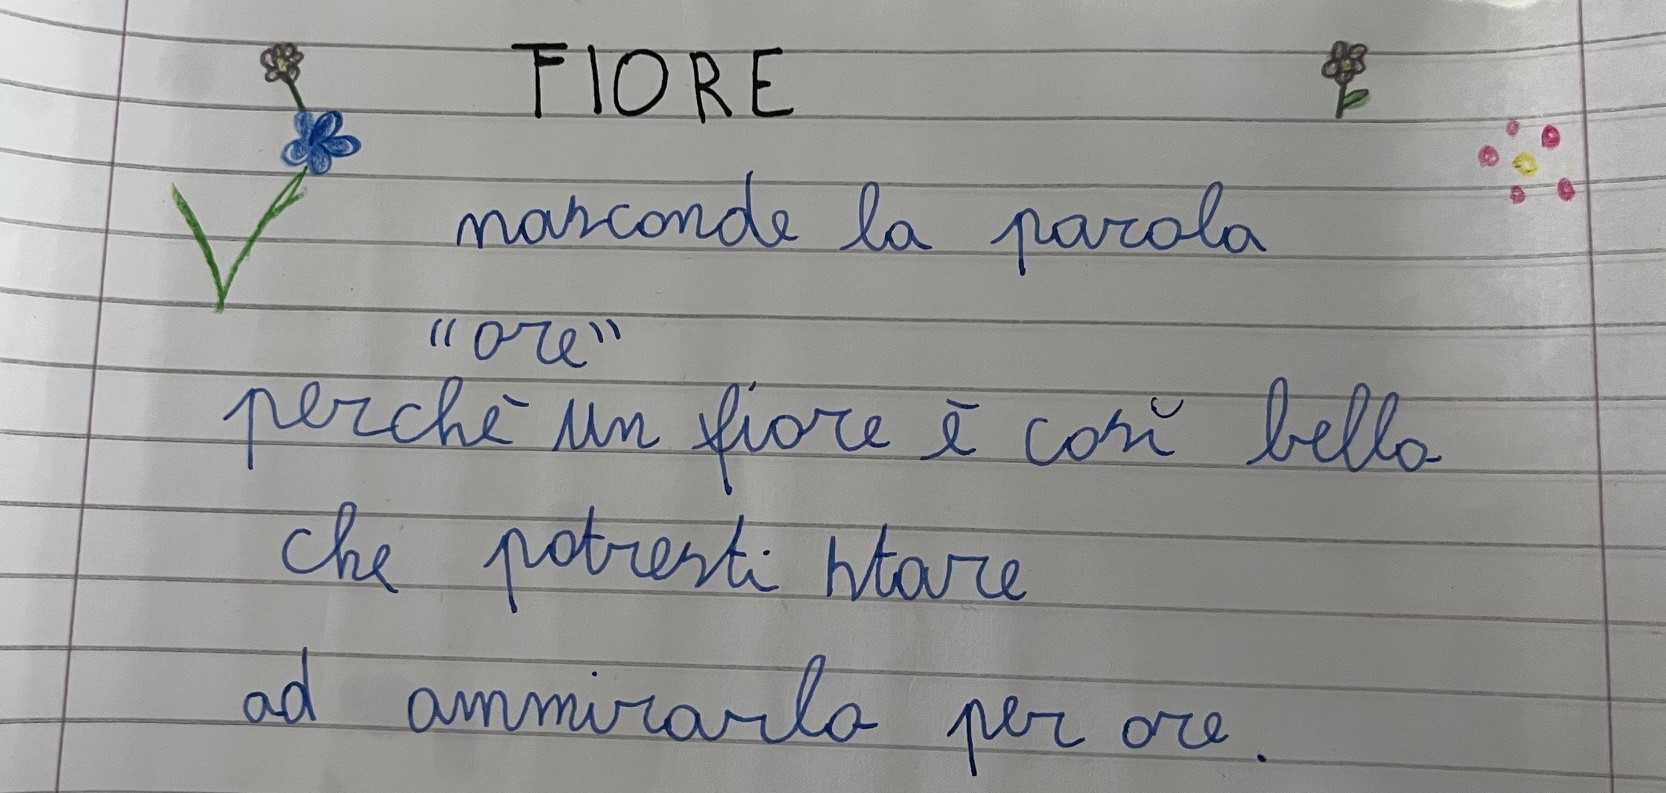 FIORE
nasconde la parola
"ore"
perchè un fiore è così bello
che potresti stare
ad ammirarlo per ore.